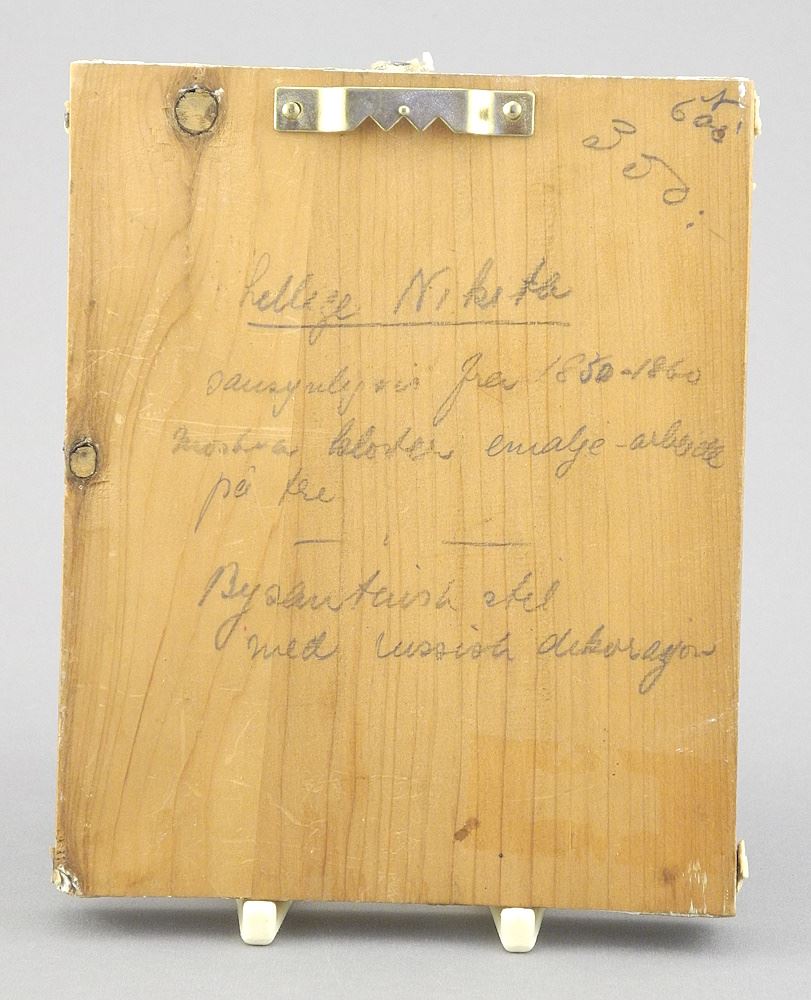 350:
hellige Niketa
sansynligvis fra 1850-1860
kloster emalje-arbeide
på tre
Bysantinisk stil
med russisk dekorasjon